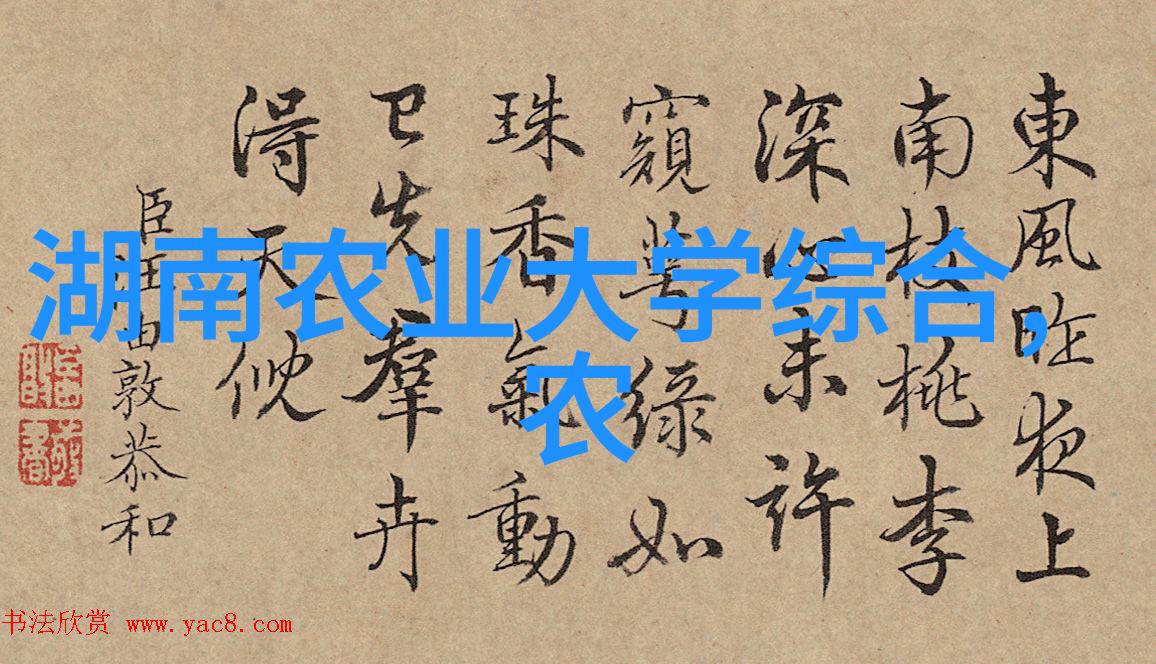 東風昨夜上
南枝桃李
深心未許
窺萼綠如
珠香氣動
已先羣卉
得天倪
臣汪由敦恭和
湖南农业大学综合,
农
书法欣赏 www.yac8.com